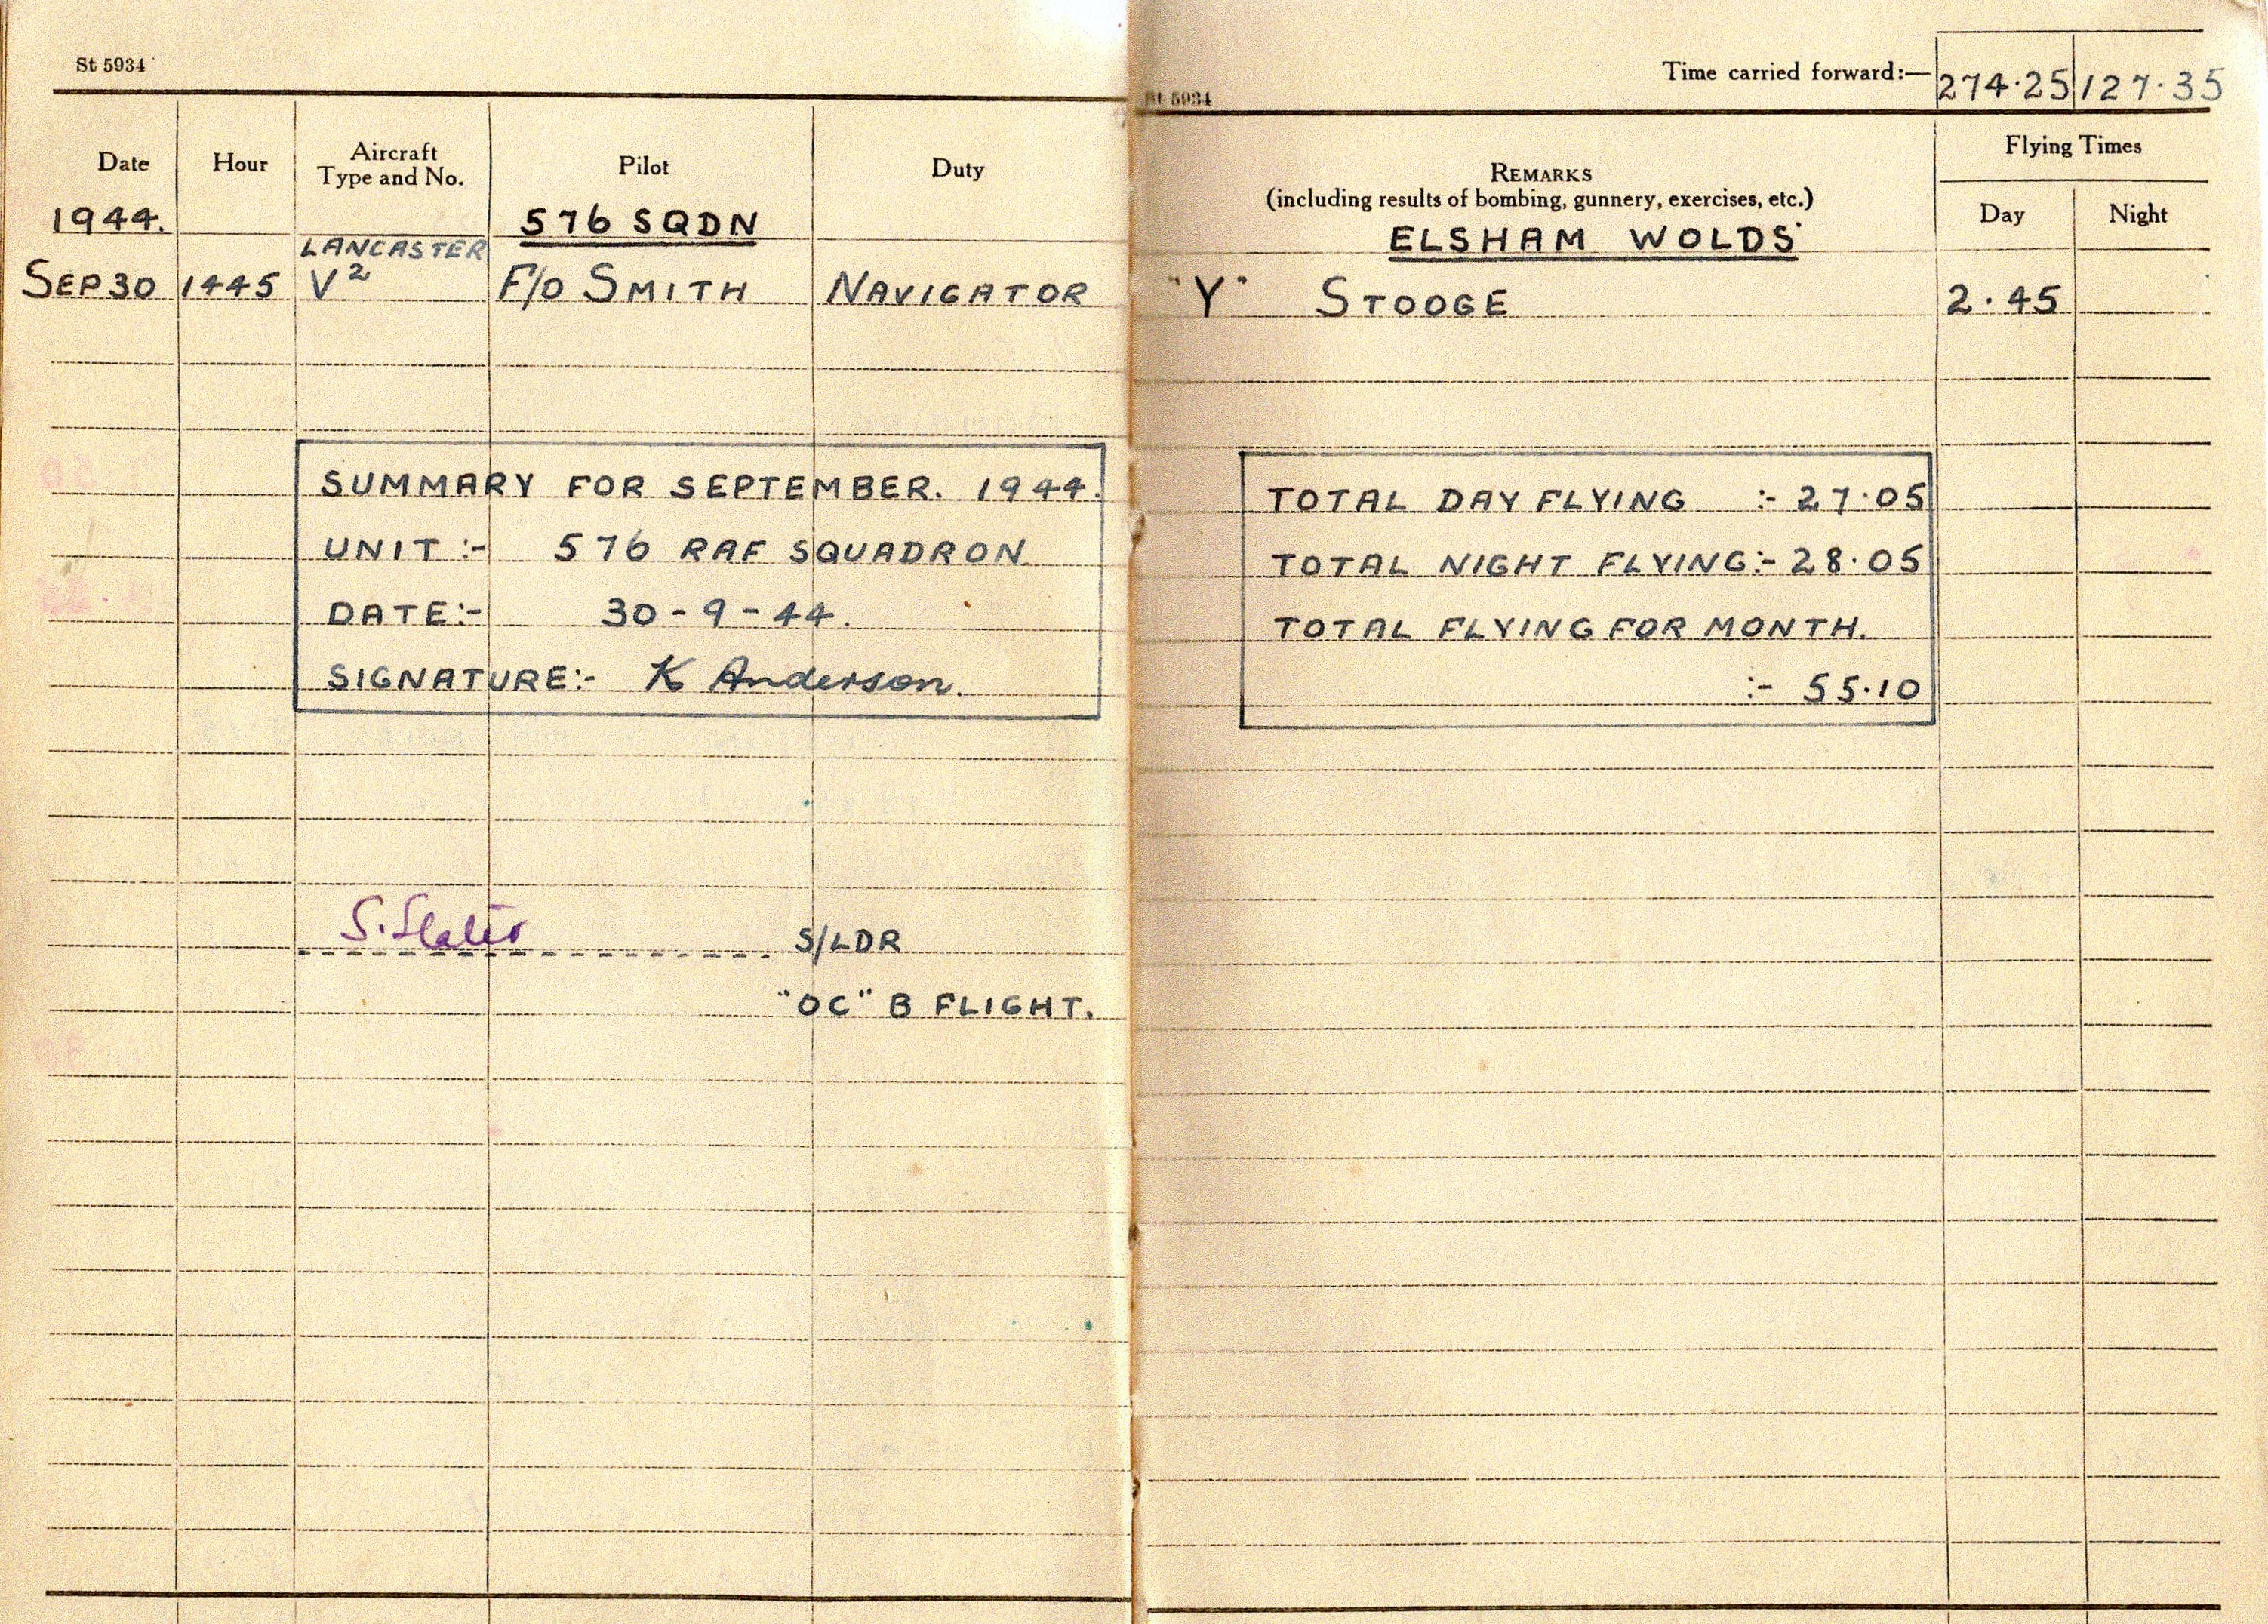 St 5934
Date Hour Aircraft Type and No. Pilot Duty
1944. 576 SQDN
LANCASTER
SEP 30 1445 V² F/O SMITH NAVIGATOR
SUMMARY FOR SEPTEMBER. 1944.
UNIT :- 576 RAF SQUADRON
DATE:- 30-9-44.
SIGNATURE:- K Anderson.
S. Slater S/LDR
"OC" B FLIGHT.
Time carried forward:— 274.25 127.35
St 5934
REMARKS
(including results of bombing, gunnery, exercises, etc.)
Flying Times
Day Night
ELSHAM WOLDS
"Y" STOOGE 2.45
TOTAL DAY FLYING :- 27.05
TOTAL NIGHT FLYING:- 28.05
TOTAL FLYING FOR MONTH.
:- 55.10